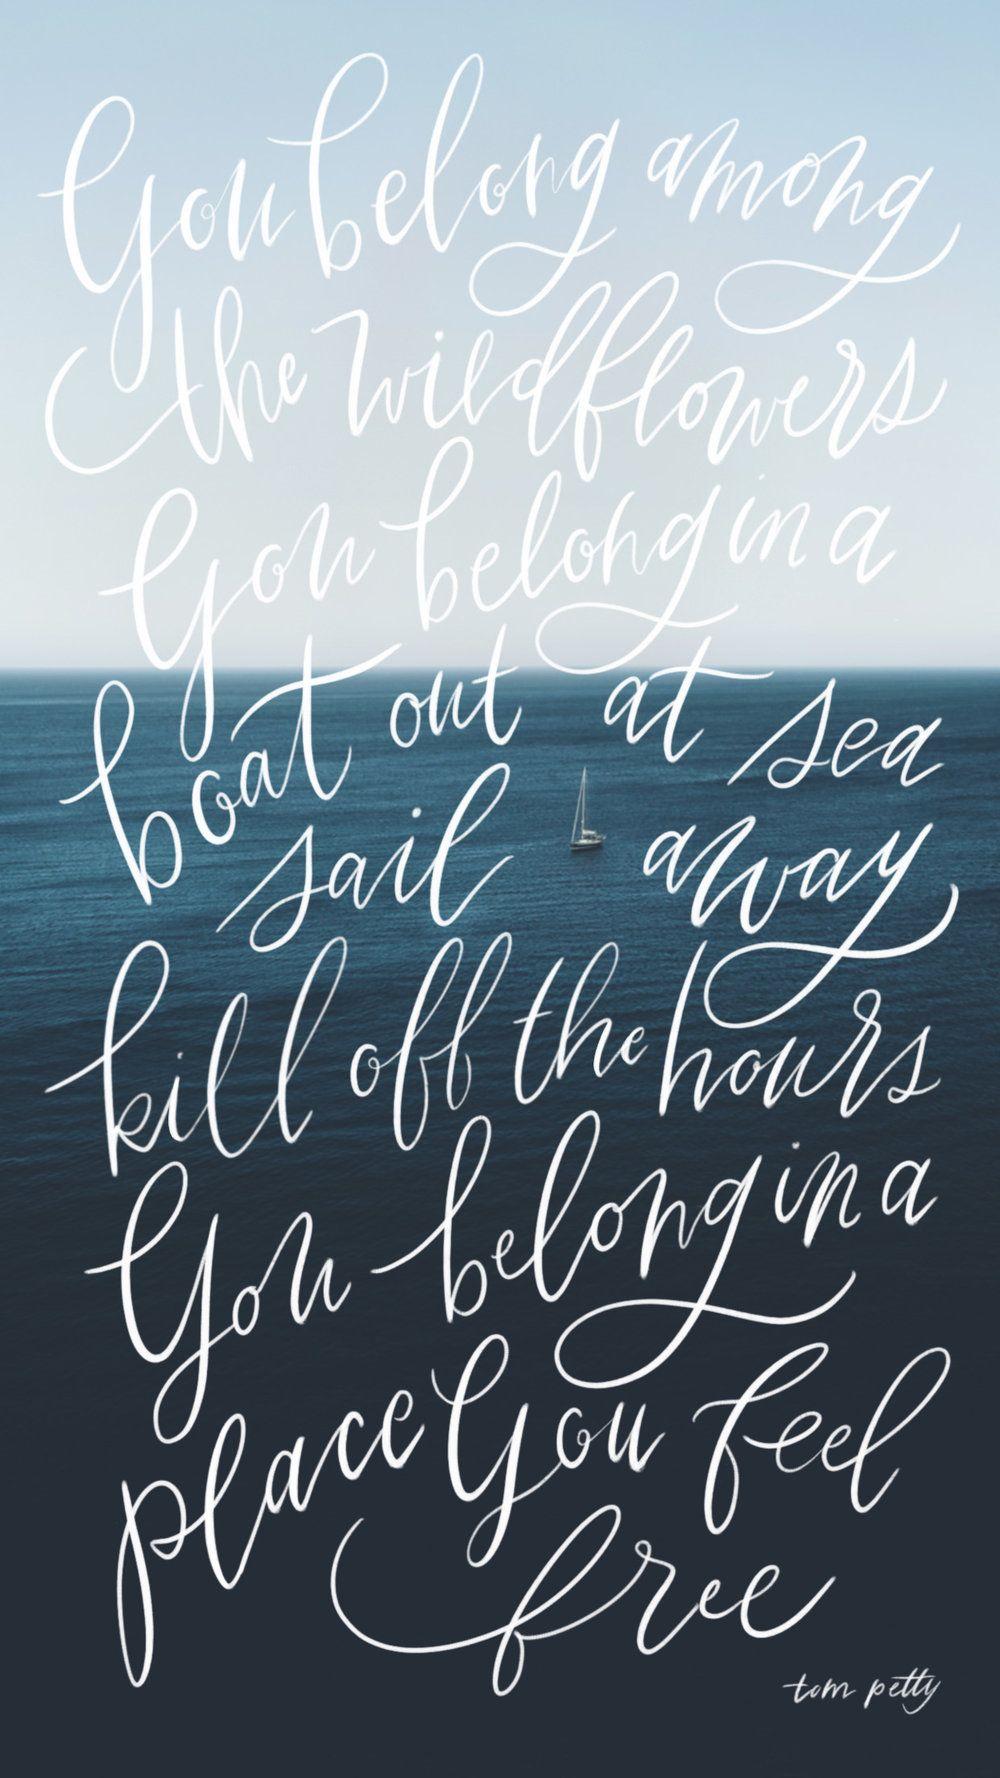 You belong among
the wildflowers
You belong in a
boat out at sea
sail away
kill off the hours
You belong in a
place You feel
free
tom petty